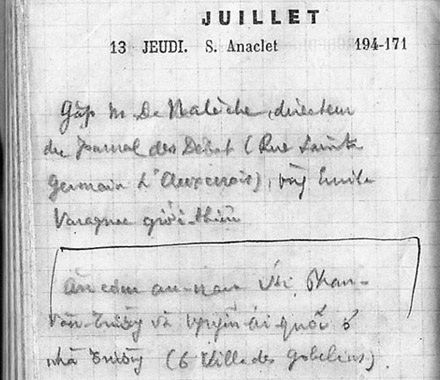 JUILLET
13 JEUDI. S. Anaclet 194-171
Gặp M. De Nalèche, directeur
du Journal des Débat (Rue Sainte
Germain l'Auxerrois), Emile
Varagnac giới thiệu
Ăn cơm an-nam với Phan-
Văn-Trường và Nguyễn-ái-quốc ở
nhà Trường (6 Villa des Gobelins).